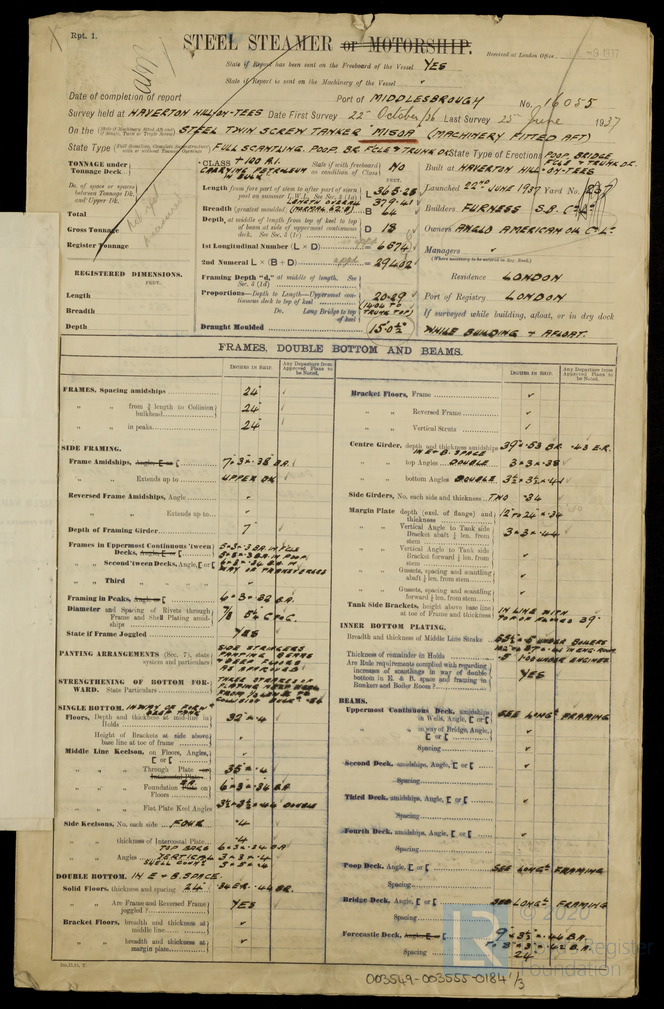 Rpt. 1.
STEEL STEAMER or MOTORSHIP.
Received at London Office
State if Report has been sent on the Freeboard of the Vessel YES
State if Report is sent on the Machinery of the Vessel
Date of completion of report
Port of MIDDLESBROUGH
No. 16055
Survey held at HAVERTON HILL-ON-TEES Date First Survey 22 October/36 Last Survey 25 June 1937
On the STEEL TWIN SCREW TANKER "MISOA" (MACHINERY FITTED AFT)
State Type FULL SCANTLING. POOP, BR. F'CLE & TRUNK DK State Type of Erections POOP, BRIDGE F'CLE & TRUNK DK.
TONNAGE under Tonnage Deck
Do. of space or spaces between Tonnage Dk. and Upper Dk.
Total
Gross Tonnage
Register Tonnage
REGISTERED DIMENSIONS.
FEET.
Length
Breadth
Depth
CLASS +100 A.1. State if with freeboard as condition of Class NO
CARRYING PETROLEUM IN BULK
FEET.
Length from fore part of stem to after part of stern post on summer L.W.L. See Sec. 3 (1a) L 365.28
LENGTH OVERALL 379.41
Breadth (greatest moulded) B 64
Depth, at middle of length from top of keel to top of beam at side of uppermost continuous deck. See Sec. 3 (1c) D 18
1st Longitudinal Number (L × D) = 6574
2nd Numeral L × (B + D) = 29402
Framing Depth "d," at middle of length. See Sec. 3 (1d)
Proportions—Depth to Length—Uppermost continuous deck to top of keel 20.29
Do. Long Bridge to top of keel (14.04 TO TRUNK TOP)
Draught Moulded 15.0½
Built at HAVERTON HILL-ON-TEES
Launched 22ND JUNE 1937 Yard No. 237
Builders FURNESS S.B. Co Ld
Owners ANGLO AMERICAN OIL Co Ld
Managers
(Where necessary to be entered in Reg. Book.)
Residence LONDON
Port of Registry LONDON
If surveyed while building, afloat, or in dry dock
WHILE BUILDING & AFLOAT.
FRAMES, DOUBLE BOTTOM AND BEAMS.
INCHES IN SHIP.
Any Departure from Approved Plans to be Noted.
FRAMES, Spacing amidships 24"
" " from ⅗ length to Collision bulkhead 24"
" " in peaks 24"
SIDE FRAMING.
Frame Amidships, Angle, E or [ 7"×3"×.38 B.A.
" " Extends up to UPPER DK
Reversed Frame Amidships, Angle
" " " Extends up to
Depth of Framing Girder 7"
Frames in Uppermost Continuous 'tween Decks, Angle, E or [ 5×3×.3 B.A. IN F'CLE
" " Second 'tween Decks, Angle, [ or [
" " Third "
Framing in Peaks, Angle or [ 6×3×.32 B.A.
Diameter and Spacing of Rivets through Frame and Shell Plating amidships 7/8 5¼ C to C.
State if Frame Joggled YES
PANTING ARRANGEMENTS (Sec. 7), state system and particulars SIDE STRINGERS PANTING BEAMS & DEEP FLOORS AS APPROVED
STRENGTHENING OF BOTTOM FORWARD. State Particulars
SINGLE BOTTOM.
Floors, Depth and thickness at mid-line in Holds 32"×.4
" Height of Brackets at side above base line at toe of frame
Middle Line Keelson, on Floors, Angles, [ or [
" " " Through Plate or Intercostal Plate 35"×.4
" " " Foundation Plate on Floors 6×3×.34 B.A.
" " " Flat Plate Keel Angles 3½×3½×.44 DOUBLE
Side Keelsons, No. each side FOUR
" " thickness of Intercostal Plate .4
TOP BARS 6×3×.34 B.A.
" " Angles VERTICAL 3×3×.4
DOUBLE BOTTOM. IN E & B. SPACE.
Solid Floors, thickness and spacing 24" .34 E.R. .44 B.R.
" " Are Frame and Reversed Frame joggled? YES
Bracket Floors, breadth and thickness at middle line
" " breadth and thickness at margin plate
Bracket Floors, Frame
" " Reversed Frame
" " Vertical Struts
Centre Girder, depth and thickness amidships 39"×.53 B.R. .43 E.R.
IN E & B. SPACE
" " top Angles DOUBLE 3×3×.38
" " bottom Angles DOUBLE 3½×3½×.44
Side Girders, No. each side and thickness TWO .34
Margin Plate depth (excl. of flange) and thickness
" " Vertical Angle to Tank side Bracket abaft ¼ len. from stem 3×3×.44
" " Vertical Angle to Tank side Bracket forward ¼ len. from stem
" " Gussets, spacing and scantling abaft ¼ len. from stem
" " Gussets, spacing and scantling forward ¼ len. from stem
Tank Side Brackets, height above base line at toe of Frame and thickness IN LINE WITH TOP OF FLOORS 39"
INNER BOTTOM PLATING.
Breadth and thickness of Middle Line Strake
Thickness of remainder in Holds
Are Rule requirements complied with regarding increase of scantlings in way of double bottom in E. & B. space and framing in Bunkers and Boiler Room? YES
BEAMS.
Uppermost Continuous Deck, amidships in Wells, Angle, [ or [ SEE LONGL FRAMING
" " in way of Bridge, Angle, [ or [
Spacing
Second Deck, amidships, Angle, [ or [
Spacing
Third Deck, amidships, Angle, [ or [
Spacing
Fourth Deck, amidships, Angle, [ or [
Spacing
Poop Deck, Angle, [ or [ SEE LONGL FRAMING
Spacing
Bridge Deck, Angle, [ or [ SEE LONGL FRAMING
Spacing
Forecastle Deck, Angle, [ or [ 9"×3½×.44 B.A.
Spacing 24"
© 2020
Lloyd's Register
Foundation
003549-003555-0184 1/3